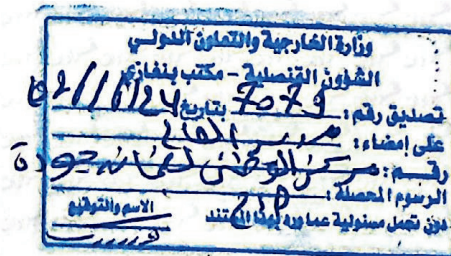 وزارة الخارجية والتعاون الدولي
الشؤون القنصلية - مكتب بنغازي
تصديق رقم: 7079 بتاريخ
على إمضاء: مدير
رقم: مركز الوطني لضمان جودة
الرسوم المحصلة:
دون تحمل مسئولية عما ورد بهذا المستند
الاسم والتوقيع